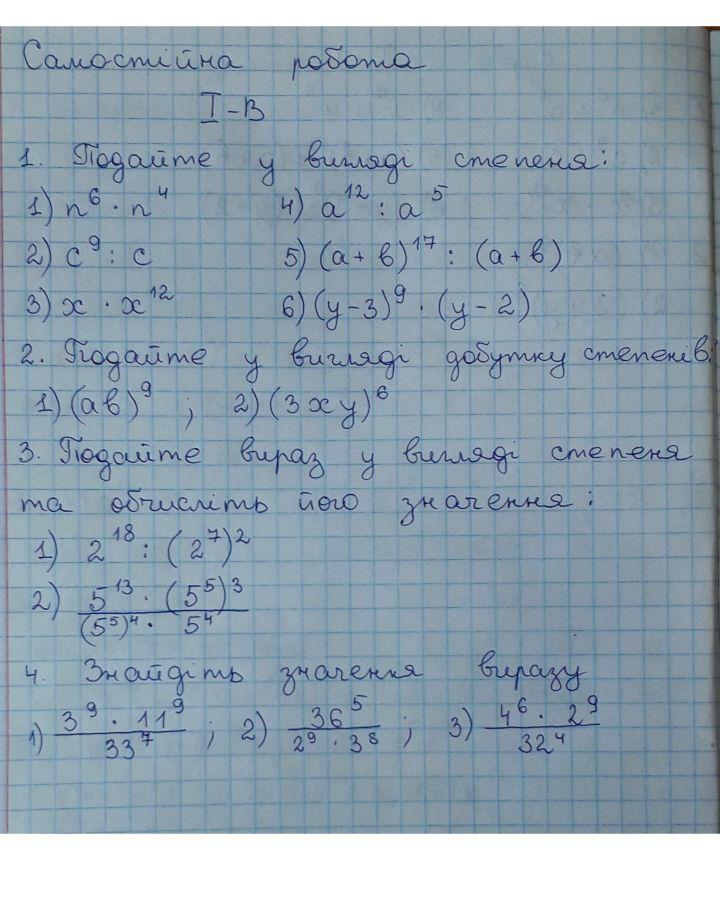 Самостійна робота
I-В
1. Подайте у вигляді степеня:
1) n⁶ · n⁴ 4) a¹² : a⁵
2) c⁹ : c 5) (a + в)¹⁷ : (a + в)
3) x · x¹² 6) (y - 3)⁹ · (y - 2)
2. Подайте у вигляді добутку степенів:
1) (aв)⁹ ; 2) (3xy)⁶
3. Подайте вираз у вигляді степеня
та обчисліть його значення:
1) 2¹⁸ : (2⁷)²
2) 5¹³ · (5⁵)³
(5⁵)⁴ · 5⁴
4. Знайдіть значення виразу
1) 3⁹ · 11⁹ / 33⁷ ; 2) 36⁵ / 2⁹ · 3⁸ ; 3) 4⁶ · 2⁹ / 32⁴